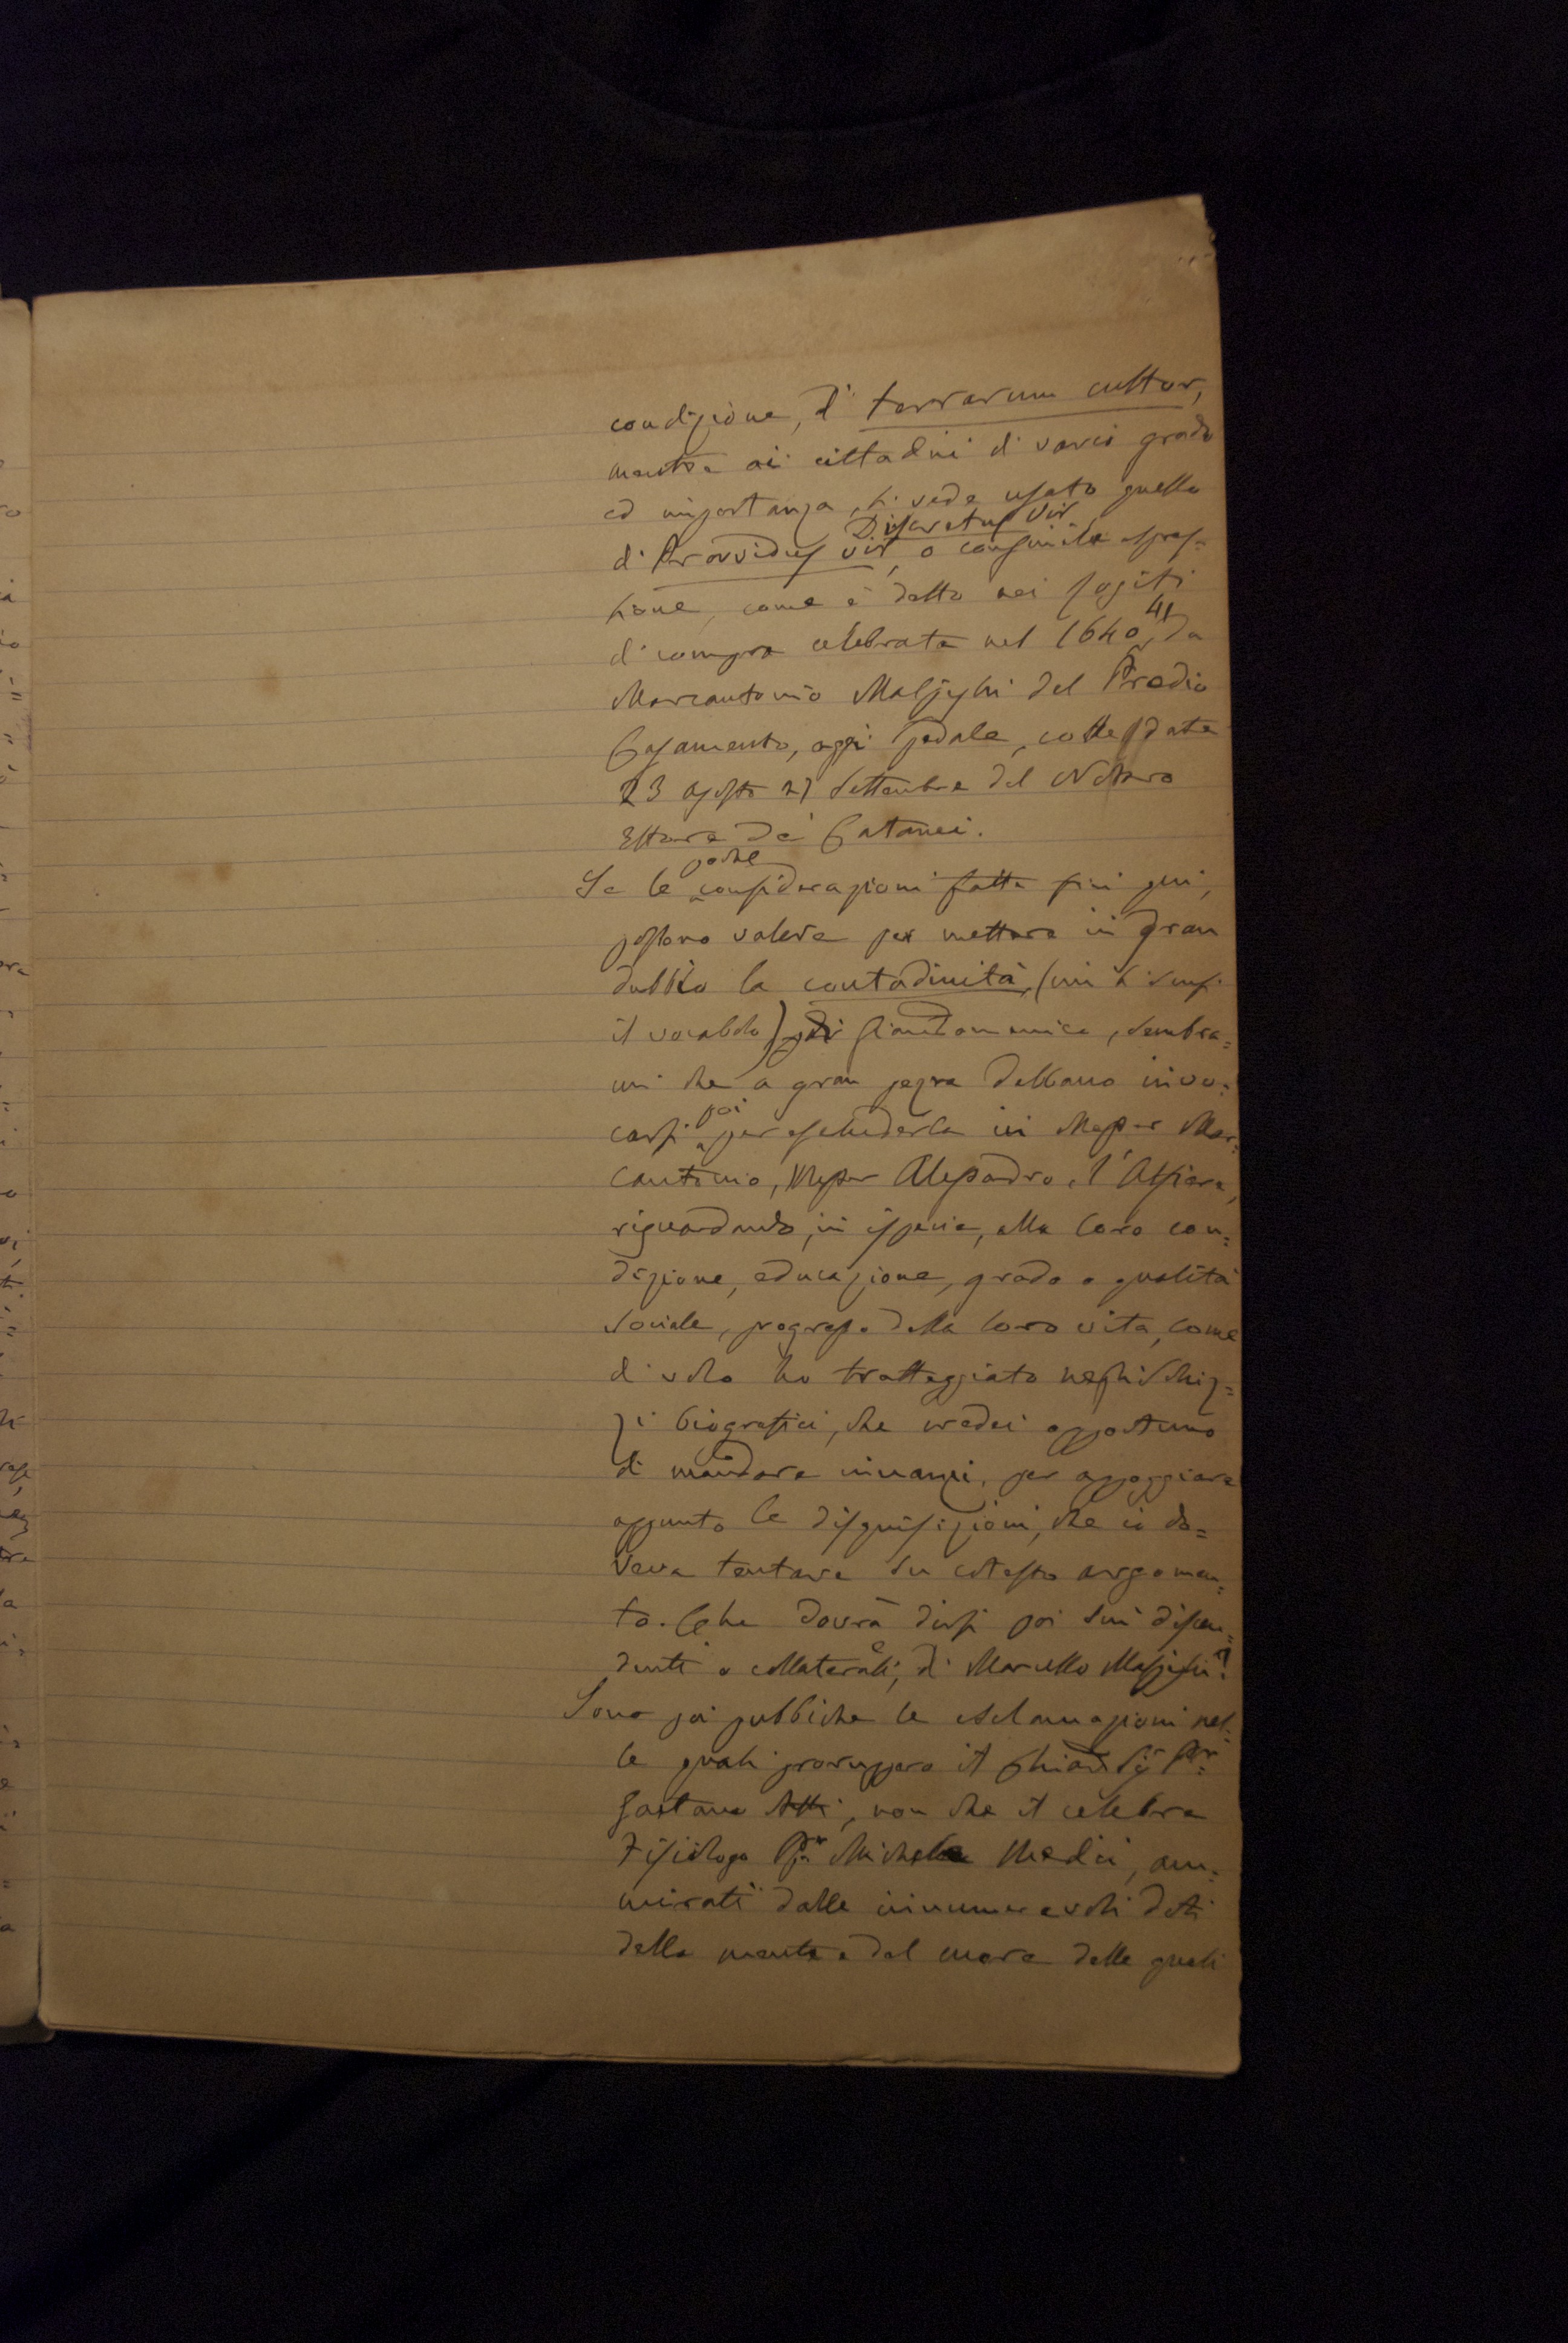 condizione, di terrarum cultor,
mentre ai cittadini di vario grado
ed importanza, si vede usato quello
Discretus Vir
di Provvidus vir, o consimile espres=
sione, come è detto nei rogiti
di compra celebrata nel 1640 41, da
Marcantonio Malpighi del Predio
Casamento, oggi Pedale, colle date
23 agosto 27 Settembre del Notaro
Ettore de' Catanei.
Se le poche considerazioni fatte fin qui,
possono valere per mettere in gran
dubbio la contadinità, (mi si scusi
il vocabolo) di Giandomenico, sembra=
mi che a gran pezza debbano invo=
carsi poi per escluderla in Messer Mar=
cantonio, Messer Alessandro, l'Alfiere,
riguardando, in ispecie, alla loro con=
dizione, educazione, grado o qualità
sociale, progresso della loro vita, come
di volo ho tratteggiato negli Schiz=
zi biografici, che credei opportuno
di mandare innanzi, per appoggiare
appunto le disquisizioni, che io do=
veva tentare su cotesto argomen=
to. Che dovrà dirsi poi sui discen=
denti o collaterali, di Marcello Malpighi?
Sono poi pubbliche le esclamazioni nel=
le quali proruppero il Chiar. Sig. Pr.
Gaetano Atti, non che il celebre
Fisiologo Michele Medici, am=
mirati dalle innumerevoli doti
della mente e del cuore delle quali